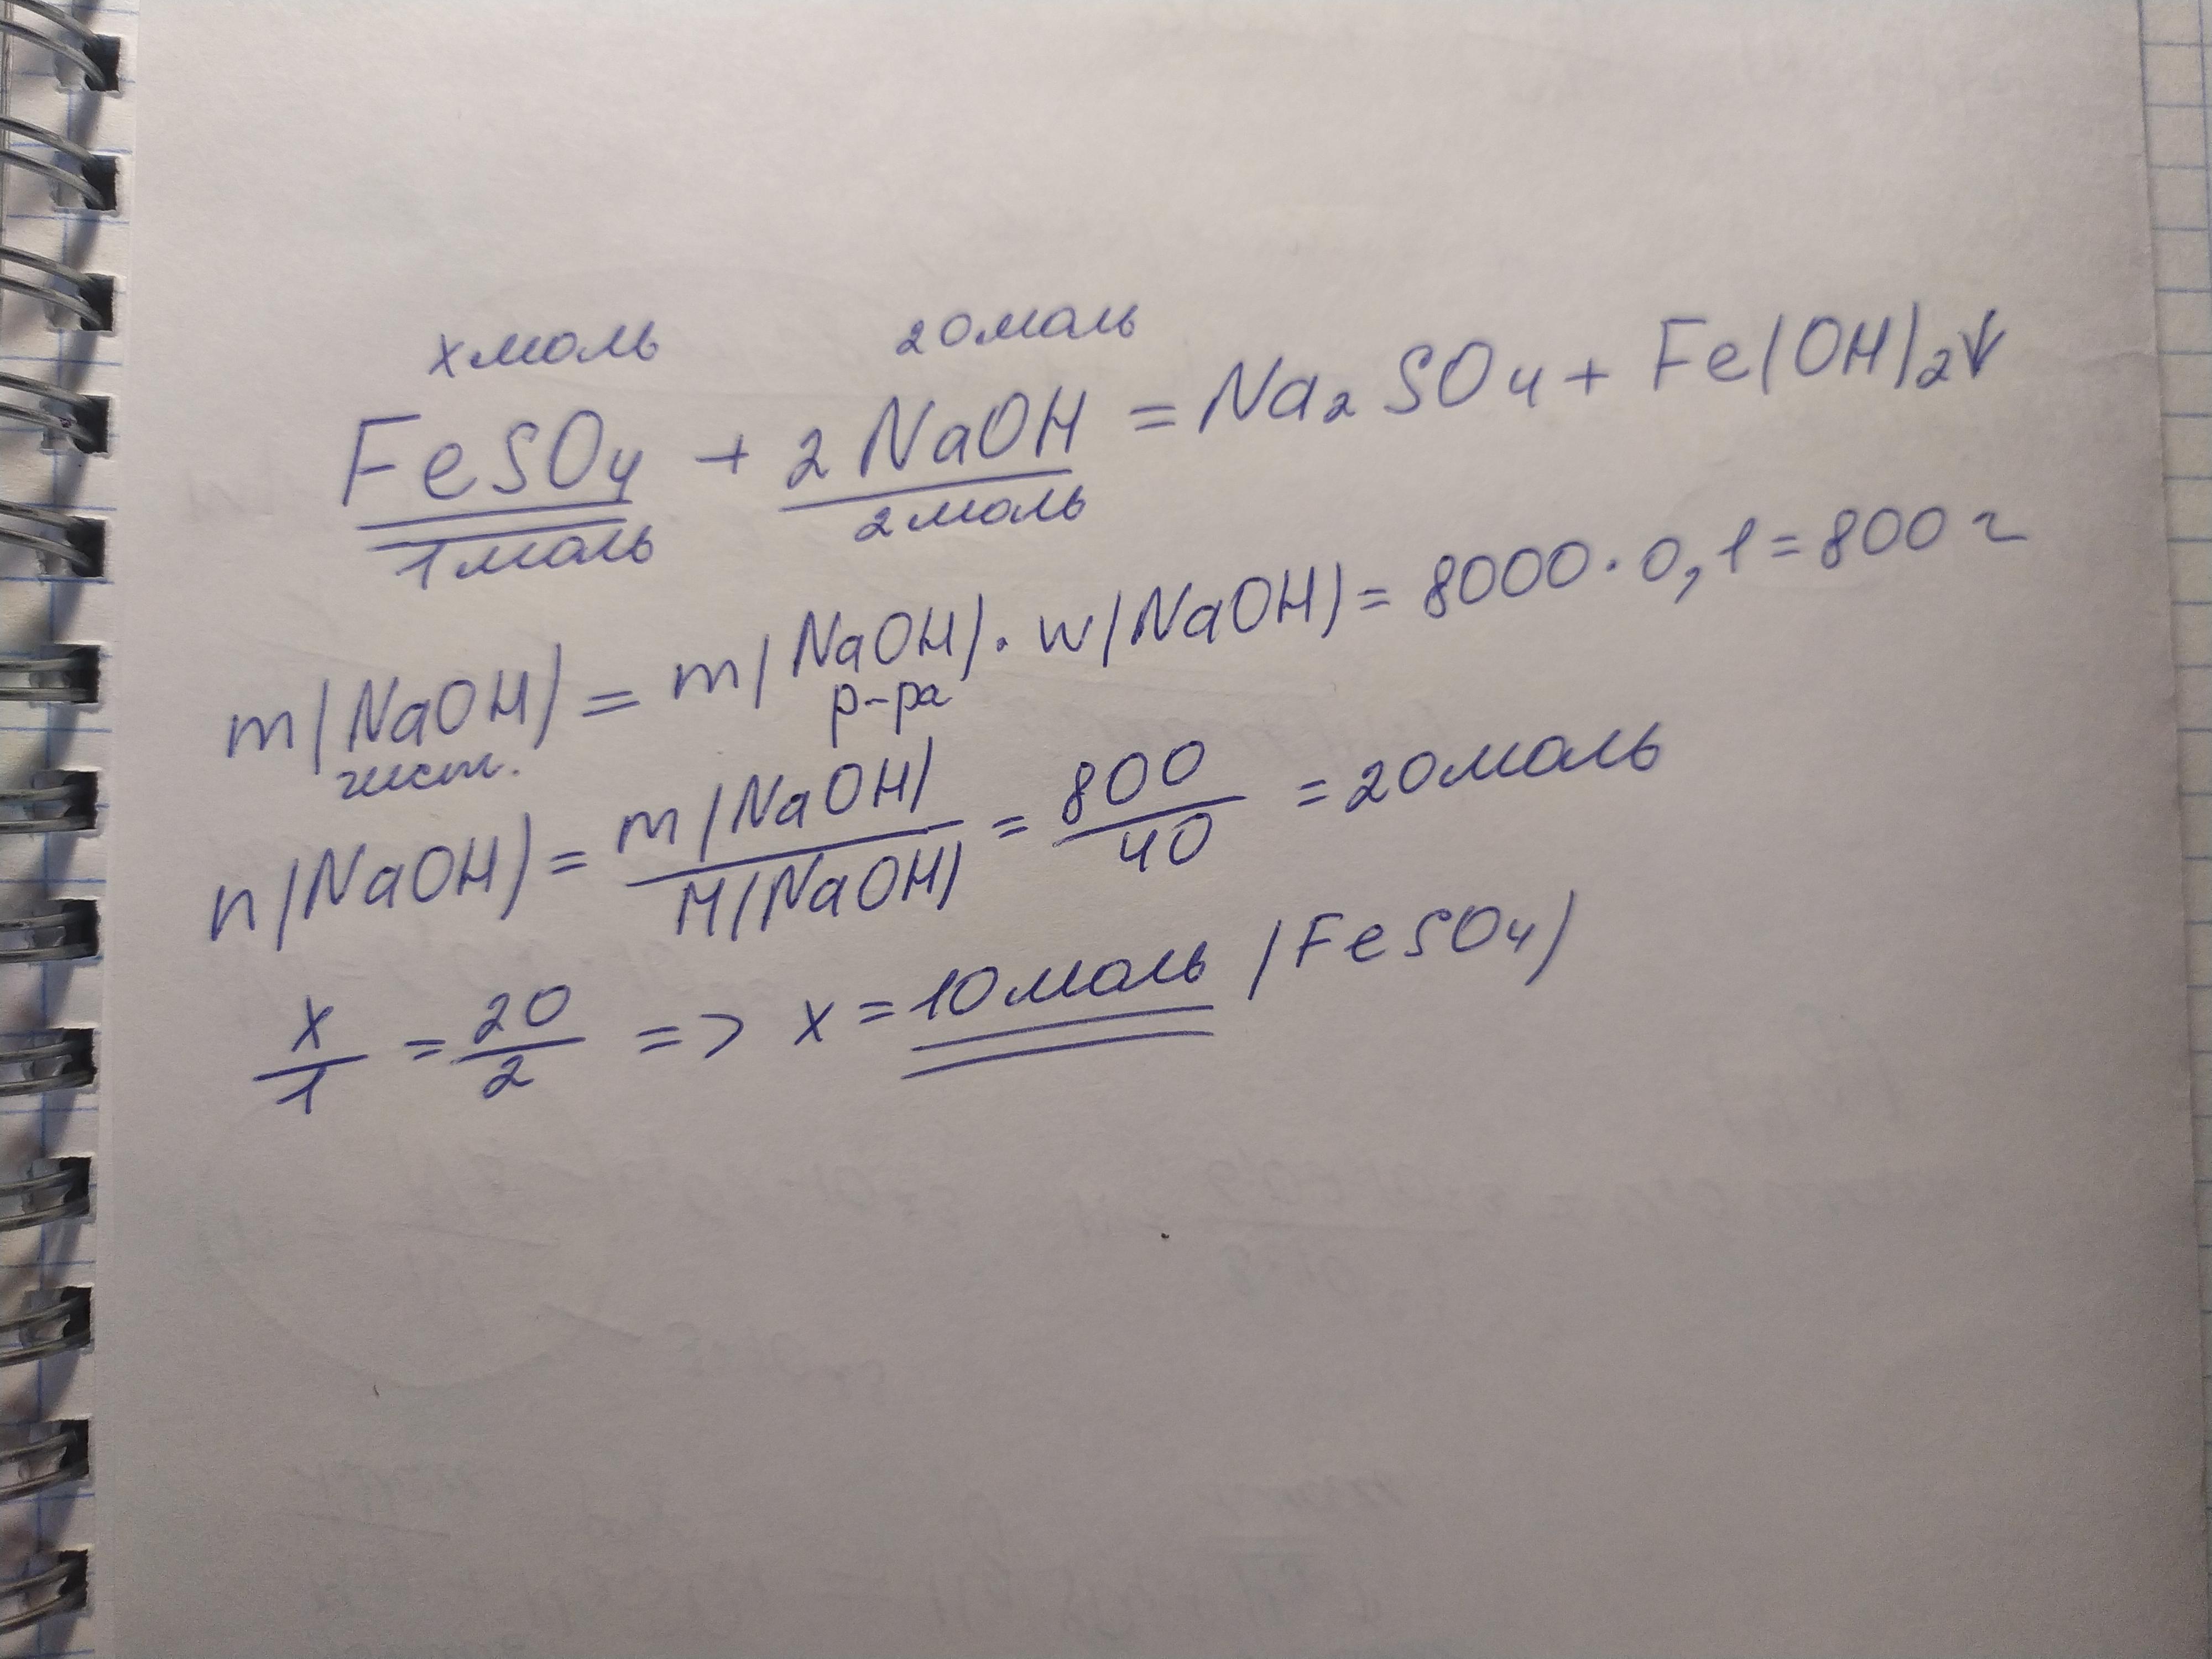 x моль 20 моль
FeSO₄ + 2 NaOH = Na₂SO₄ + Fe(OH)₂↓
1 моль 2 моль
m(NaOH) = m(NaOH) · w(NaOH) = 8000 · 0,1 = 800 г
чист. р-ра
n(NaOH) = m(NaOH)/M(NaOH) = 800/40 = 20 моль
x/1 = 20/2 => x = 10 моль (FeSO₄)